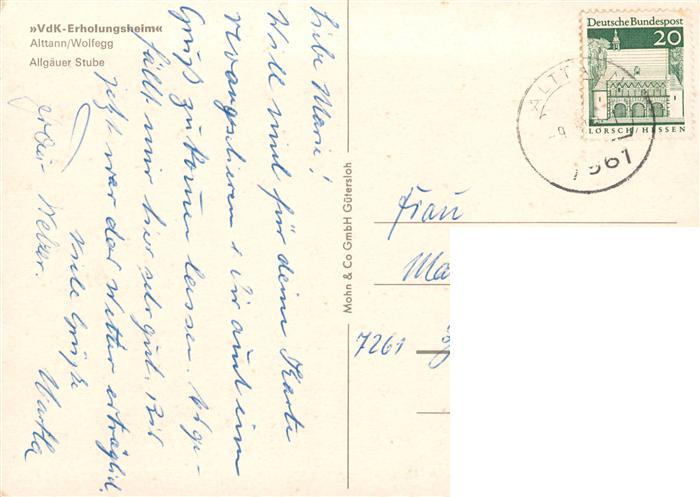 »VdK-Erholungsheim«
Alttann/Wolfegg
Allgäuer Stube
Liebe Marie!
Will mich für deine Karte
revangschieren & Dir auch ein
Gruß zukommen lassen.
fällt mir hier sehr gut. Bis
jetzt war das Wetter erträglich.
Viele Grüße
Martha
Mohn & Co GmbH Gütersloh
Deutsche Bundespost
20
LORSCH/HESSEN
ALTTA
7961
Frau
Ma
7261